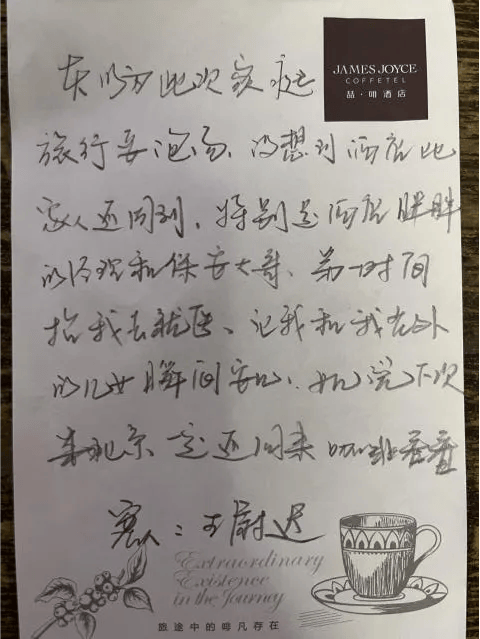 JAMES JOYCE
COFFETEL
喆·啡酒店
以为此次家庭
旅行要泡汤、没想到酒店比
家人还周到，特别是酒店胖胖
的经理和保安大哥、第一时间
抬我去就医、让我和我在外
的儿女瞬间安心、女儿说下次
来北京一定还回来 看看
客人：王尉迟
Extraordinary
Existence
in the Journey
旅途中的啡凡存在